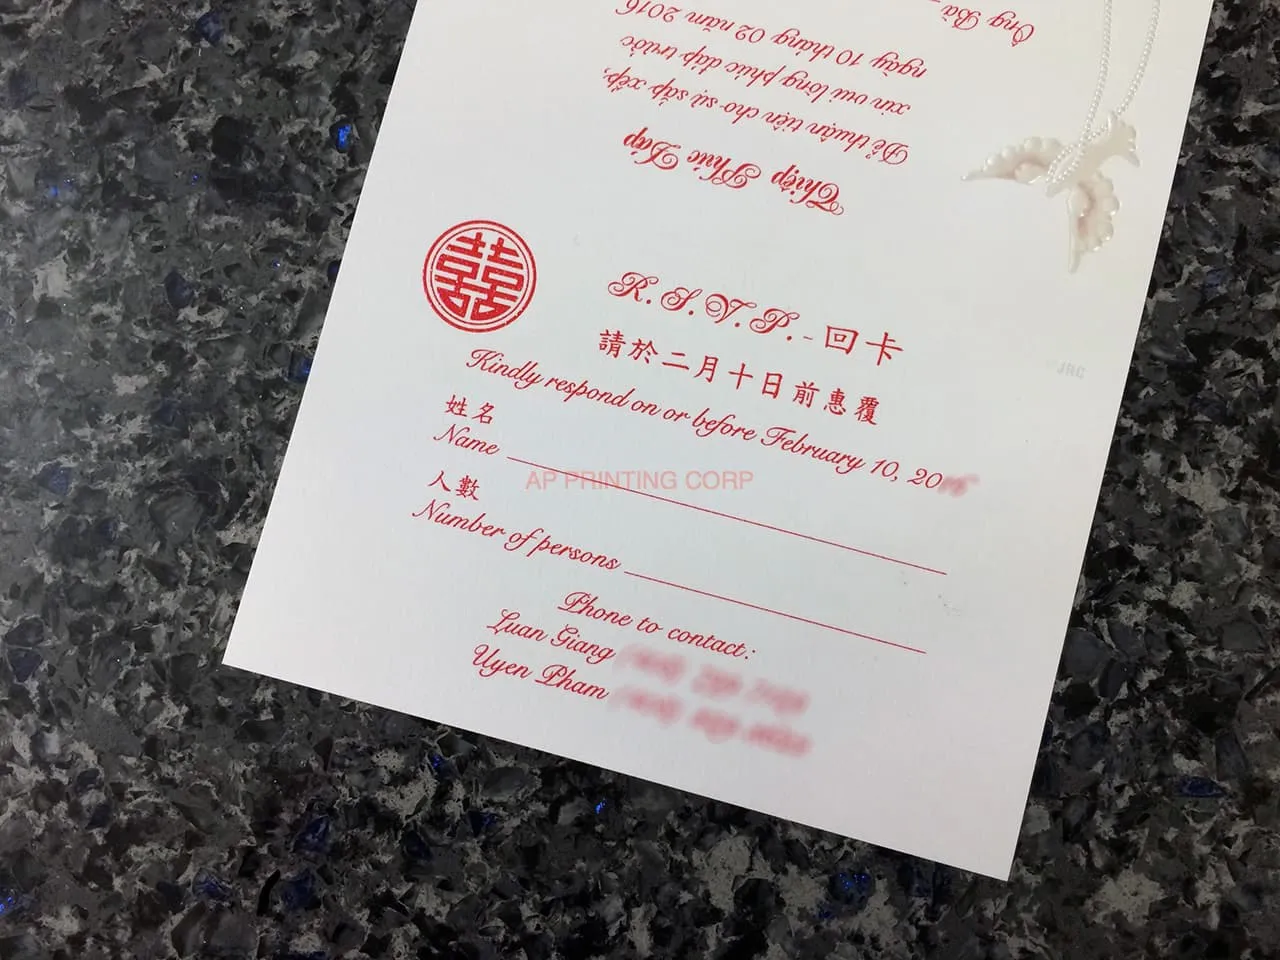 Thiệp Phúc Đáp
Để thuận tiện cho sự sắp xếp,
xin vui lòng phúc đáp trước
ngày 10 tháng 02 năm 2016
Ông Bà
囍
R.S.V.P.-回卡
請於二月十日前惠覆
Kindly respond on or before February 10, 20
姓名
Name
AP PRINTING CORP
人數
Number of persons
Phone to contact:
Luan Giang
Uyen Pham